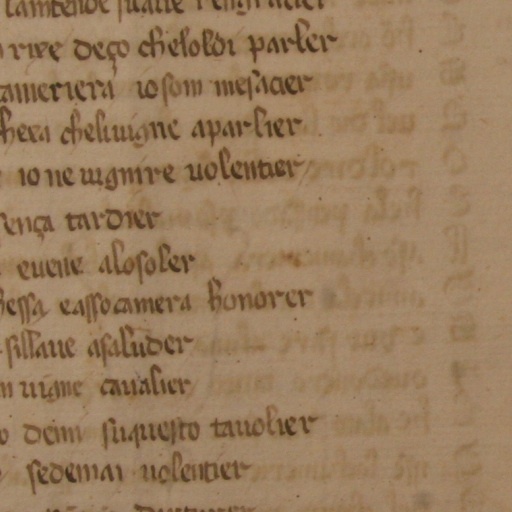 lamtende suaue rengracier
rire deço cheloldi parler
cameriera iosom mesacier
chera cheliuigne aparlier
io ne uignire uolentier
sença tardier
euene alosoler
hessa eassocamera honorer
sillaue asaluder
uigne caualier
deim suquesto tauolier
sedemai uolentier